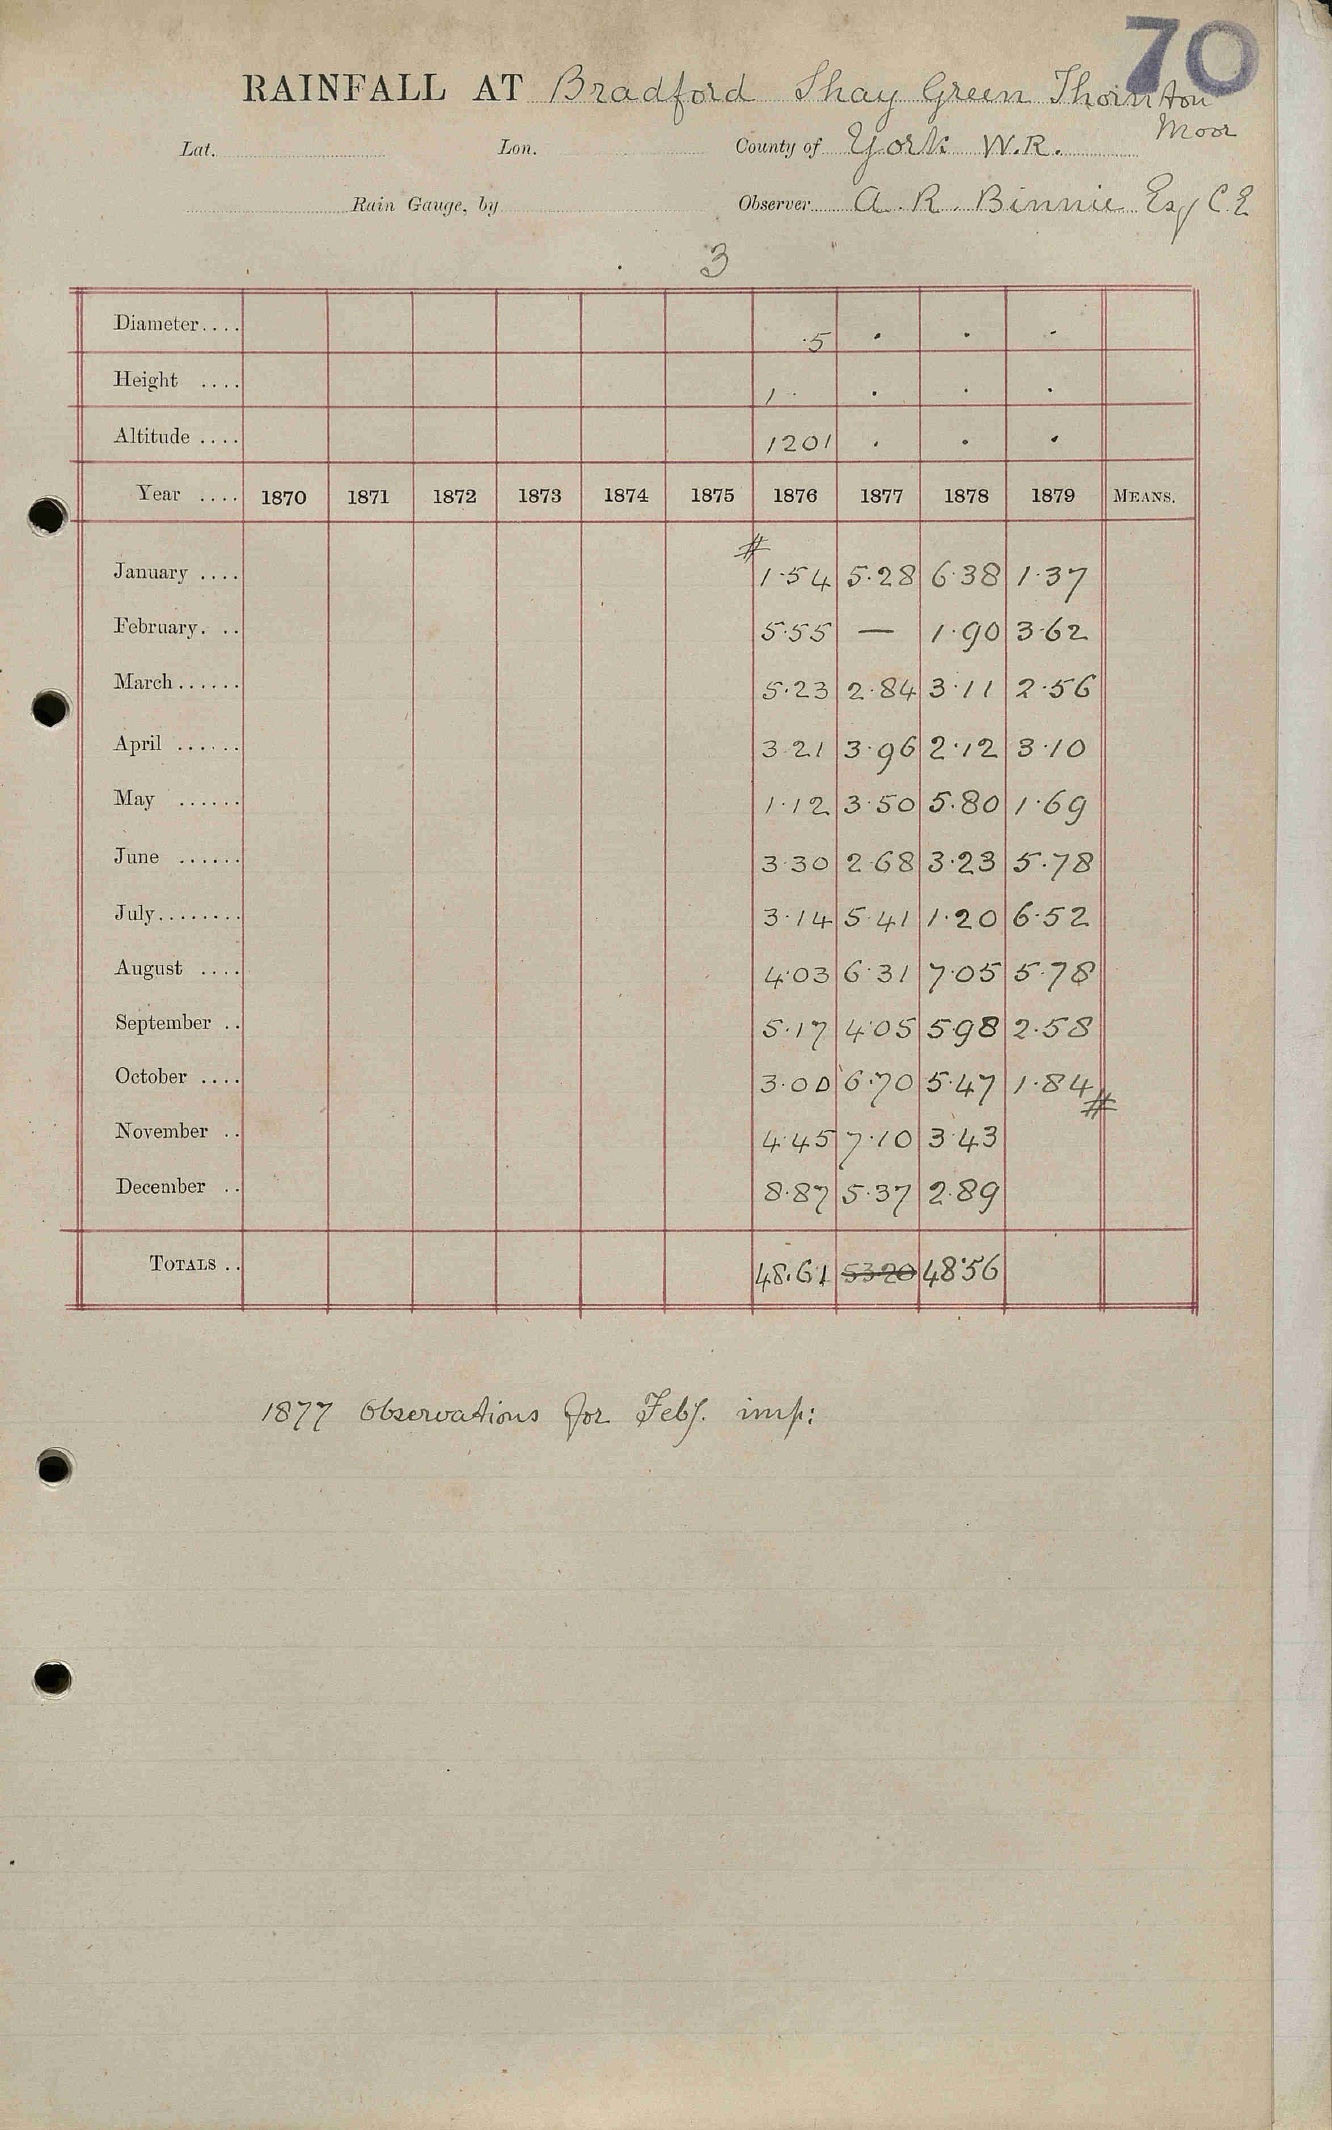 70
RAINFALL AT Bradford Shay Green Thornton
Moor
Lat. Lon. County of York W.R.
Rain Gauge, by Observer A. R. Binnie Esq C.E
3
Diameter.... 5 . . .
Height .... 1 . . . .
Altitude .... 1201 . . .
Year .... 1870 1871 1872 1873 1874 1875 1876 1877 1878 1879 MEANS.
#
January .... 1.54 5.28 6.38 1.37
February. .. 5.55 — 1.90 3.62
March...... 5.23 2.84 3.11 2.56
April ...... 3.21 3.96 2.12 3.10
May ...... 1.12 3.50 5.80 1.69
June ...... 3.30 2.68 3.23 5.78
July........ 3.14 5.41 1.20 6.52
August .... 4.03 6.31 7.05 5.78
September .. 5.17 4.05 5.98 2.58
October .... 3.00 6.70 5.47 1.84 #
November .. 4.45 7.10 3.43
December .. 8.87 5.37 2.89
TOTALS .. 48.61 53.20 48.56
1877 Observations for Feby. imp: